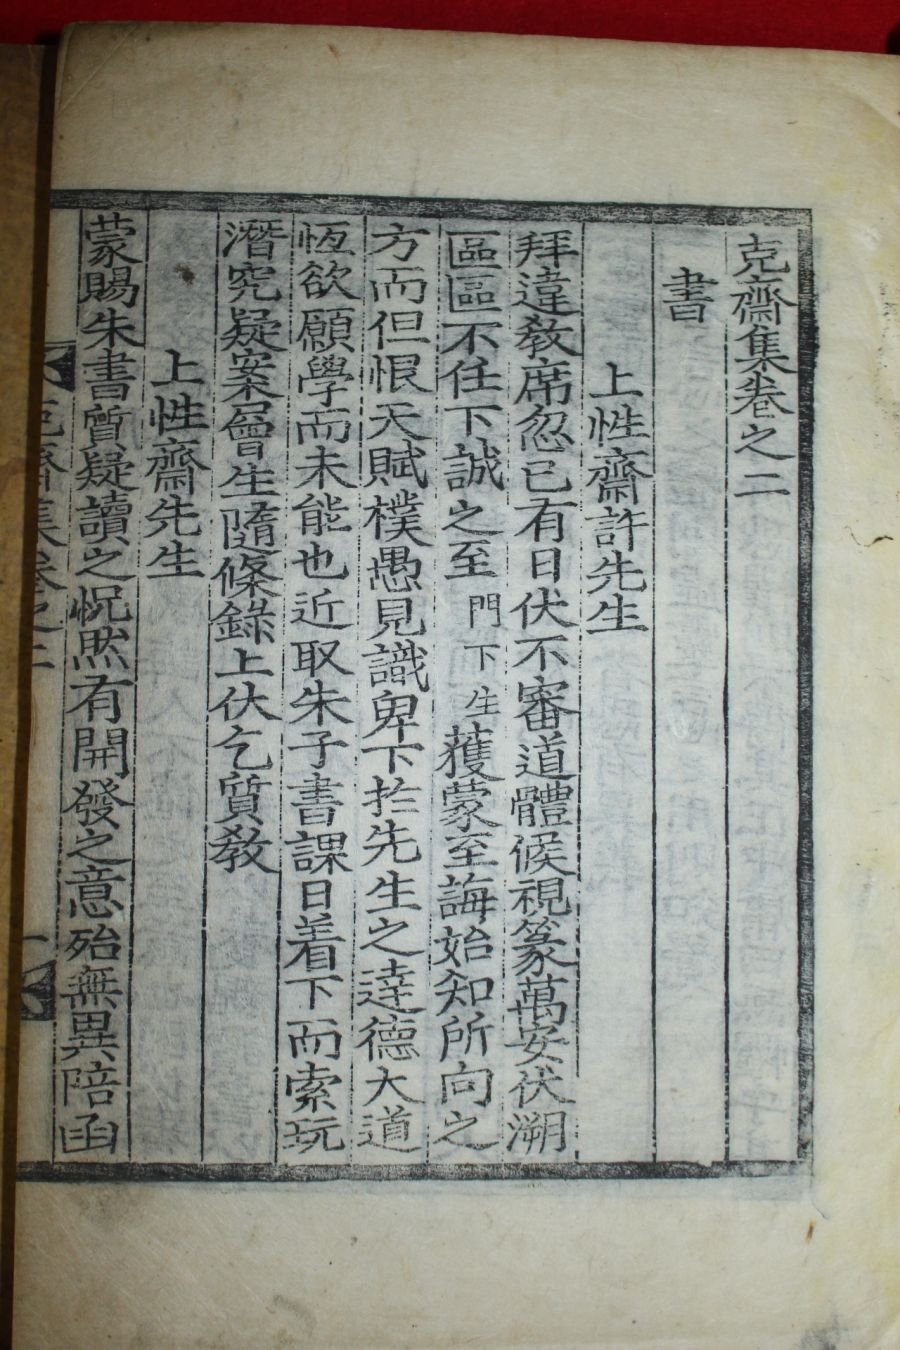 克齋集卷之二
書
上性齋許先生
拜違敎席忽已有日伏不審道體候視篆萬安伏溯
區區不任下誠之至門下生獲蒙至誨始知所向之
方而但恨天賦樸愚見識卑下於先生之達德大道
恆欲願學而未能也近取朱子書課日着下而索玩
潛究疑案層生隨條錄上伏乞質敎
上性齋先生
蒙賜朱書質疑讀之怳然有開發之意殆無異陪函
克齋集卷之二
一